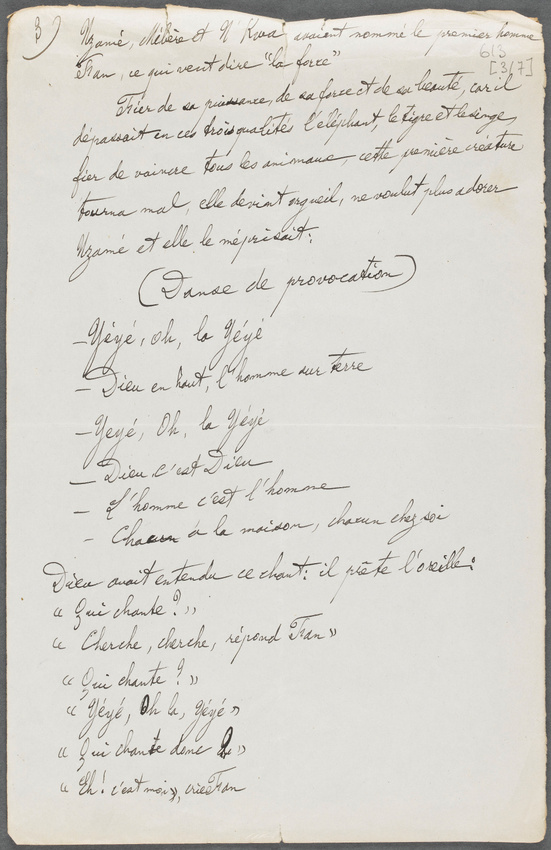 3) Nzamé, Mébère et N'Kwa, avaient nommé le premier homme
613
[3/7]
Fran, ce qui veut dire "la force"
Fier de sa puissance, de sa force et de sa beauté, car il
dépassait en ces trois qualités l'éléphant, le tigre et le singe,
fier de vaincre tous les animaux, cette première créature
tourna mal, elle devint orgueil, ne voulut plus adorer
Nzamé et elle le méprisait:
(Danse de provocation)
- Yéyé, oh, la Yéyé
- Dieu en haut, l'homme sur terre
- Yeyé, Oh, la Yéyé
- Dieu c'est Dieu
- L'homme c'est l'homme
- Chacun à la maison, chacun chez soi
Dieu avait entendu ce chant: il prête l'oreille:
« Qui chante? »
« Cherche, cherche, répond Fran »
« Qui chante? »
« Yéyé, Oh la, Yéyé »
« Qui chante donc ? »
« Eh! c'est moi », crie Fran